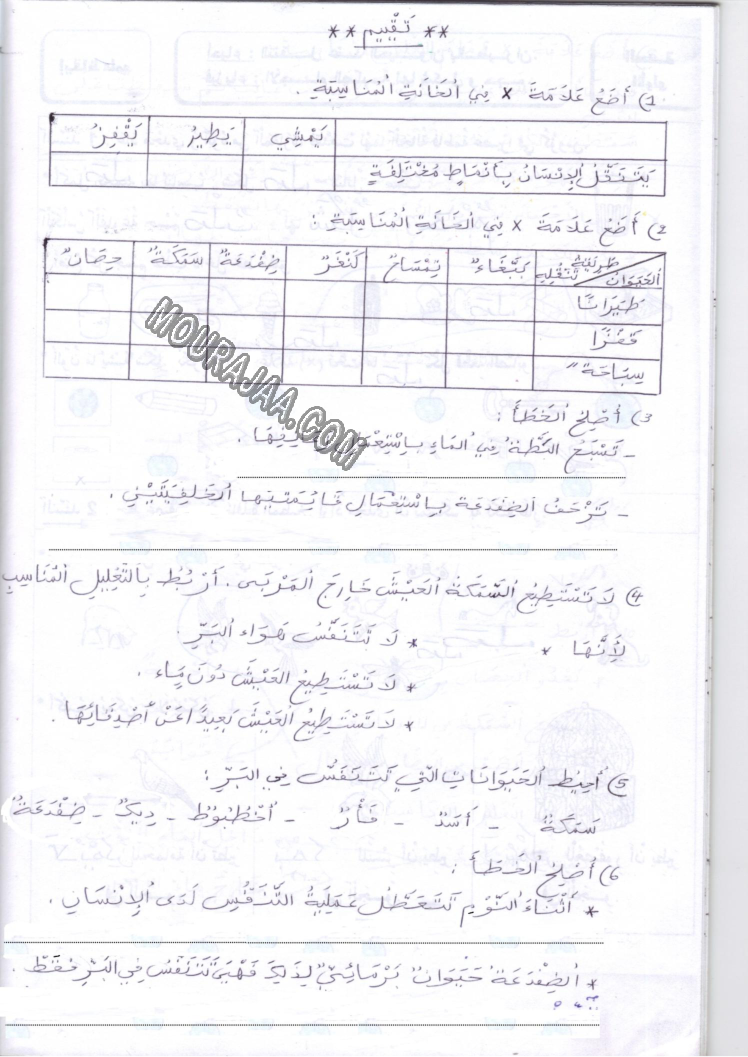 ** تَقْيِيم **
1) أَضَعُ عَلَامَةَ x فِي الخَانَةِ الْمُنَاسِبَةِ .
يَمْشِي يَطِيرُ يَقْفِزُ
يَتَنَقَّلُ الإِنْسَانُ بِأَنْمَاطٍ مُخْتَلِفَةٍ
2) أَضَعُ عَلَامَةَ x فِي الخَانَةِ الْمُنَاسِبَةِ :
طَرِيقَةُ تَنَقُّلِهِ الحَيَوَانُ بَبَّغَاءٌ تِمْسَاحٌ كَنْغَرٌ ضِفْدَعَةٌ سَمَكَةٌ حِصَانٌ
طَيَرَانًا
قَفْزًا
سِبَاحَةً
3) أُصْلِحُ الخَطَأَ :
- تَسْبَحُ البَطَّةُ فِي المَاءِ بِاسْتِعْمَالِ
- تَزْحَفُ الضِفْدَعَة بِاسْتِعْمَالِ قَائِمَتَيْهَا الخَلْفِيَّتَيْنِ .
4) لَا تَسْتَطِيعُ السَّمَكَةُ العَيْشَ خَارِجَ المَرْبَى . أَرْبُطُ بِالتَّعْلِيلِ الْمُنَاسِبِ
لِأَنَّهَا * * لَا تَتَنَفَّسُ هَوَاء البَرِّ .
* لَا تَسْتَطِيعُ العَيْشَ دُونَ مَاء .
* لَا تَسْتَطِيعُ العَيْشَ بَعِيدًا عَنْ أَصْدِقَائِهَا .
5) أُحِيطُ الحَيَوَانَاتِ الّتِي تَتَنَفَّسُ فِي البَرِّ :
سَمَكَةٌ - أَسَدٌ - فَأْرٌ - أُخْطُبُوطٌ - دِيكٌ - ضِفْدَعَةٌ
6) أُصْلِحُ الخَطَأَ :
* أَثْنَاءَ النَّوْمِ تَتَعَطَّلُ عَمَلِيَّةُ التَّنَفُّسِ لَدَى الإِنْسَانِ .
* الضِفْدَعَةُ حَيَوَانٌ بَرْمَائِيٌّ لِذَلِكَ فَهْيَ تَتَنَفَّسُ فِي البَرِّ فَقَطْ .
MOURAJAA.COM